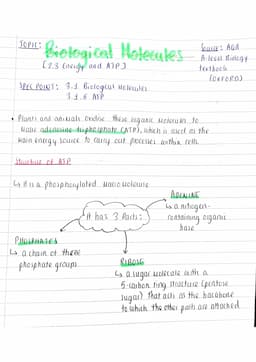 TOPIC: Biological Molecules
[2.3 Energy and ATP]
Source: AQA
A-level Biology
textbook
(OXFORD)
SPEC POINTS: 3.1 Biological Molecules
3.1.6 ATP
• Plants and animals these organic molecules to
make adenosine triphosphate (ATP), which is used as the
main energy source to carry out processes within cells.
Structure of ATP
↳ It is a phosphorylated macromolecule
It has 3 parts:
ADENINE
↳ a nitrogen-
containing organic
base
PHOSPHATES
↳ a chain of three
phosphate groups
RIBOSE
↳ a sugar molecule with a
5-carbon ring structure (pentose
sugar) that acts as the backbone
to which the other parts are attached